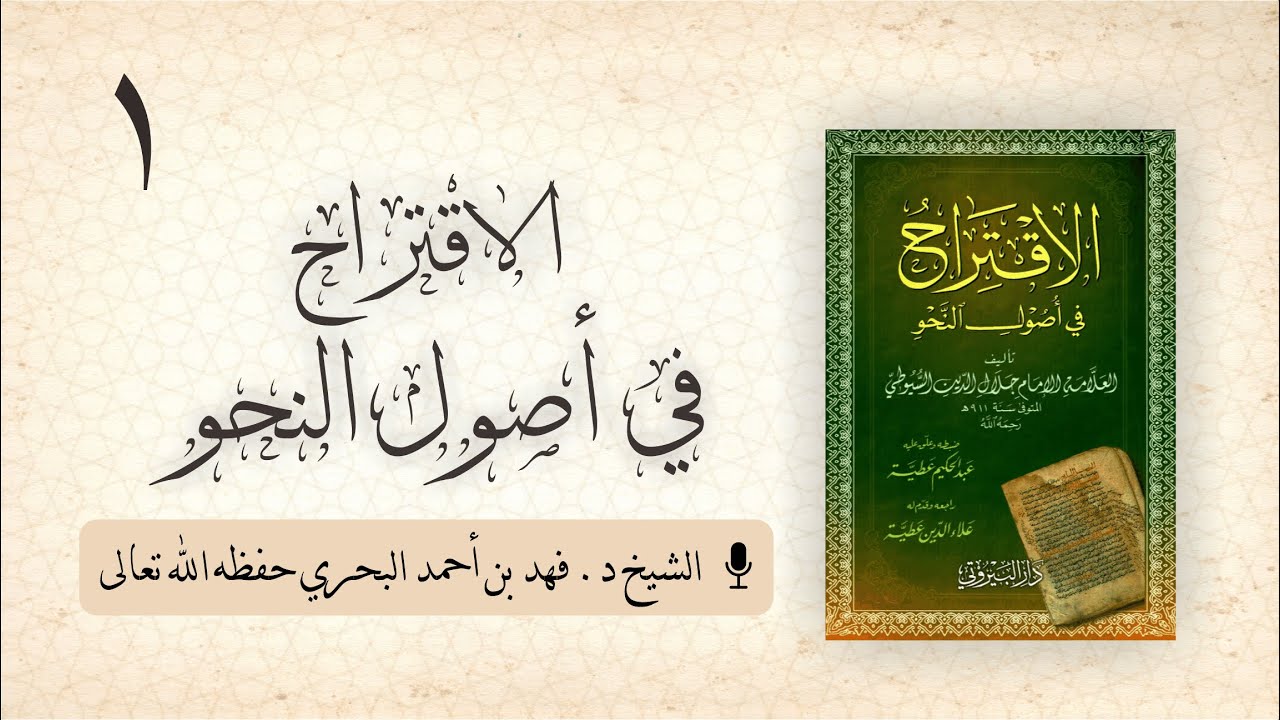 ١
الاقتراح
في أصول النحو
الشيخ د . فهد بن أحمد البحري حفظه الله تعالى
الاقْتِرَاحُ
في أُصُولِ النَّحْوِ
تأليف
العلَّامة الإمام جلال الدين السُّيُوطيّ
المتوفى سَنَة ٩١١هـ
رَحِمَهُ اللَّهُ
ضبطه وعلّق عليه
عبد الحكيم عطيّة
راجعه وقدّم له
علاء الدّين عطيّة
دار البيروتي